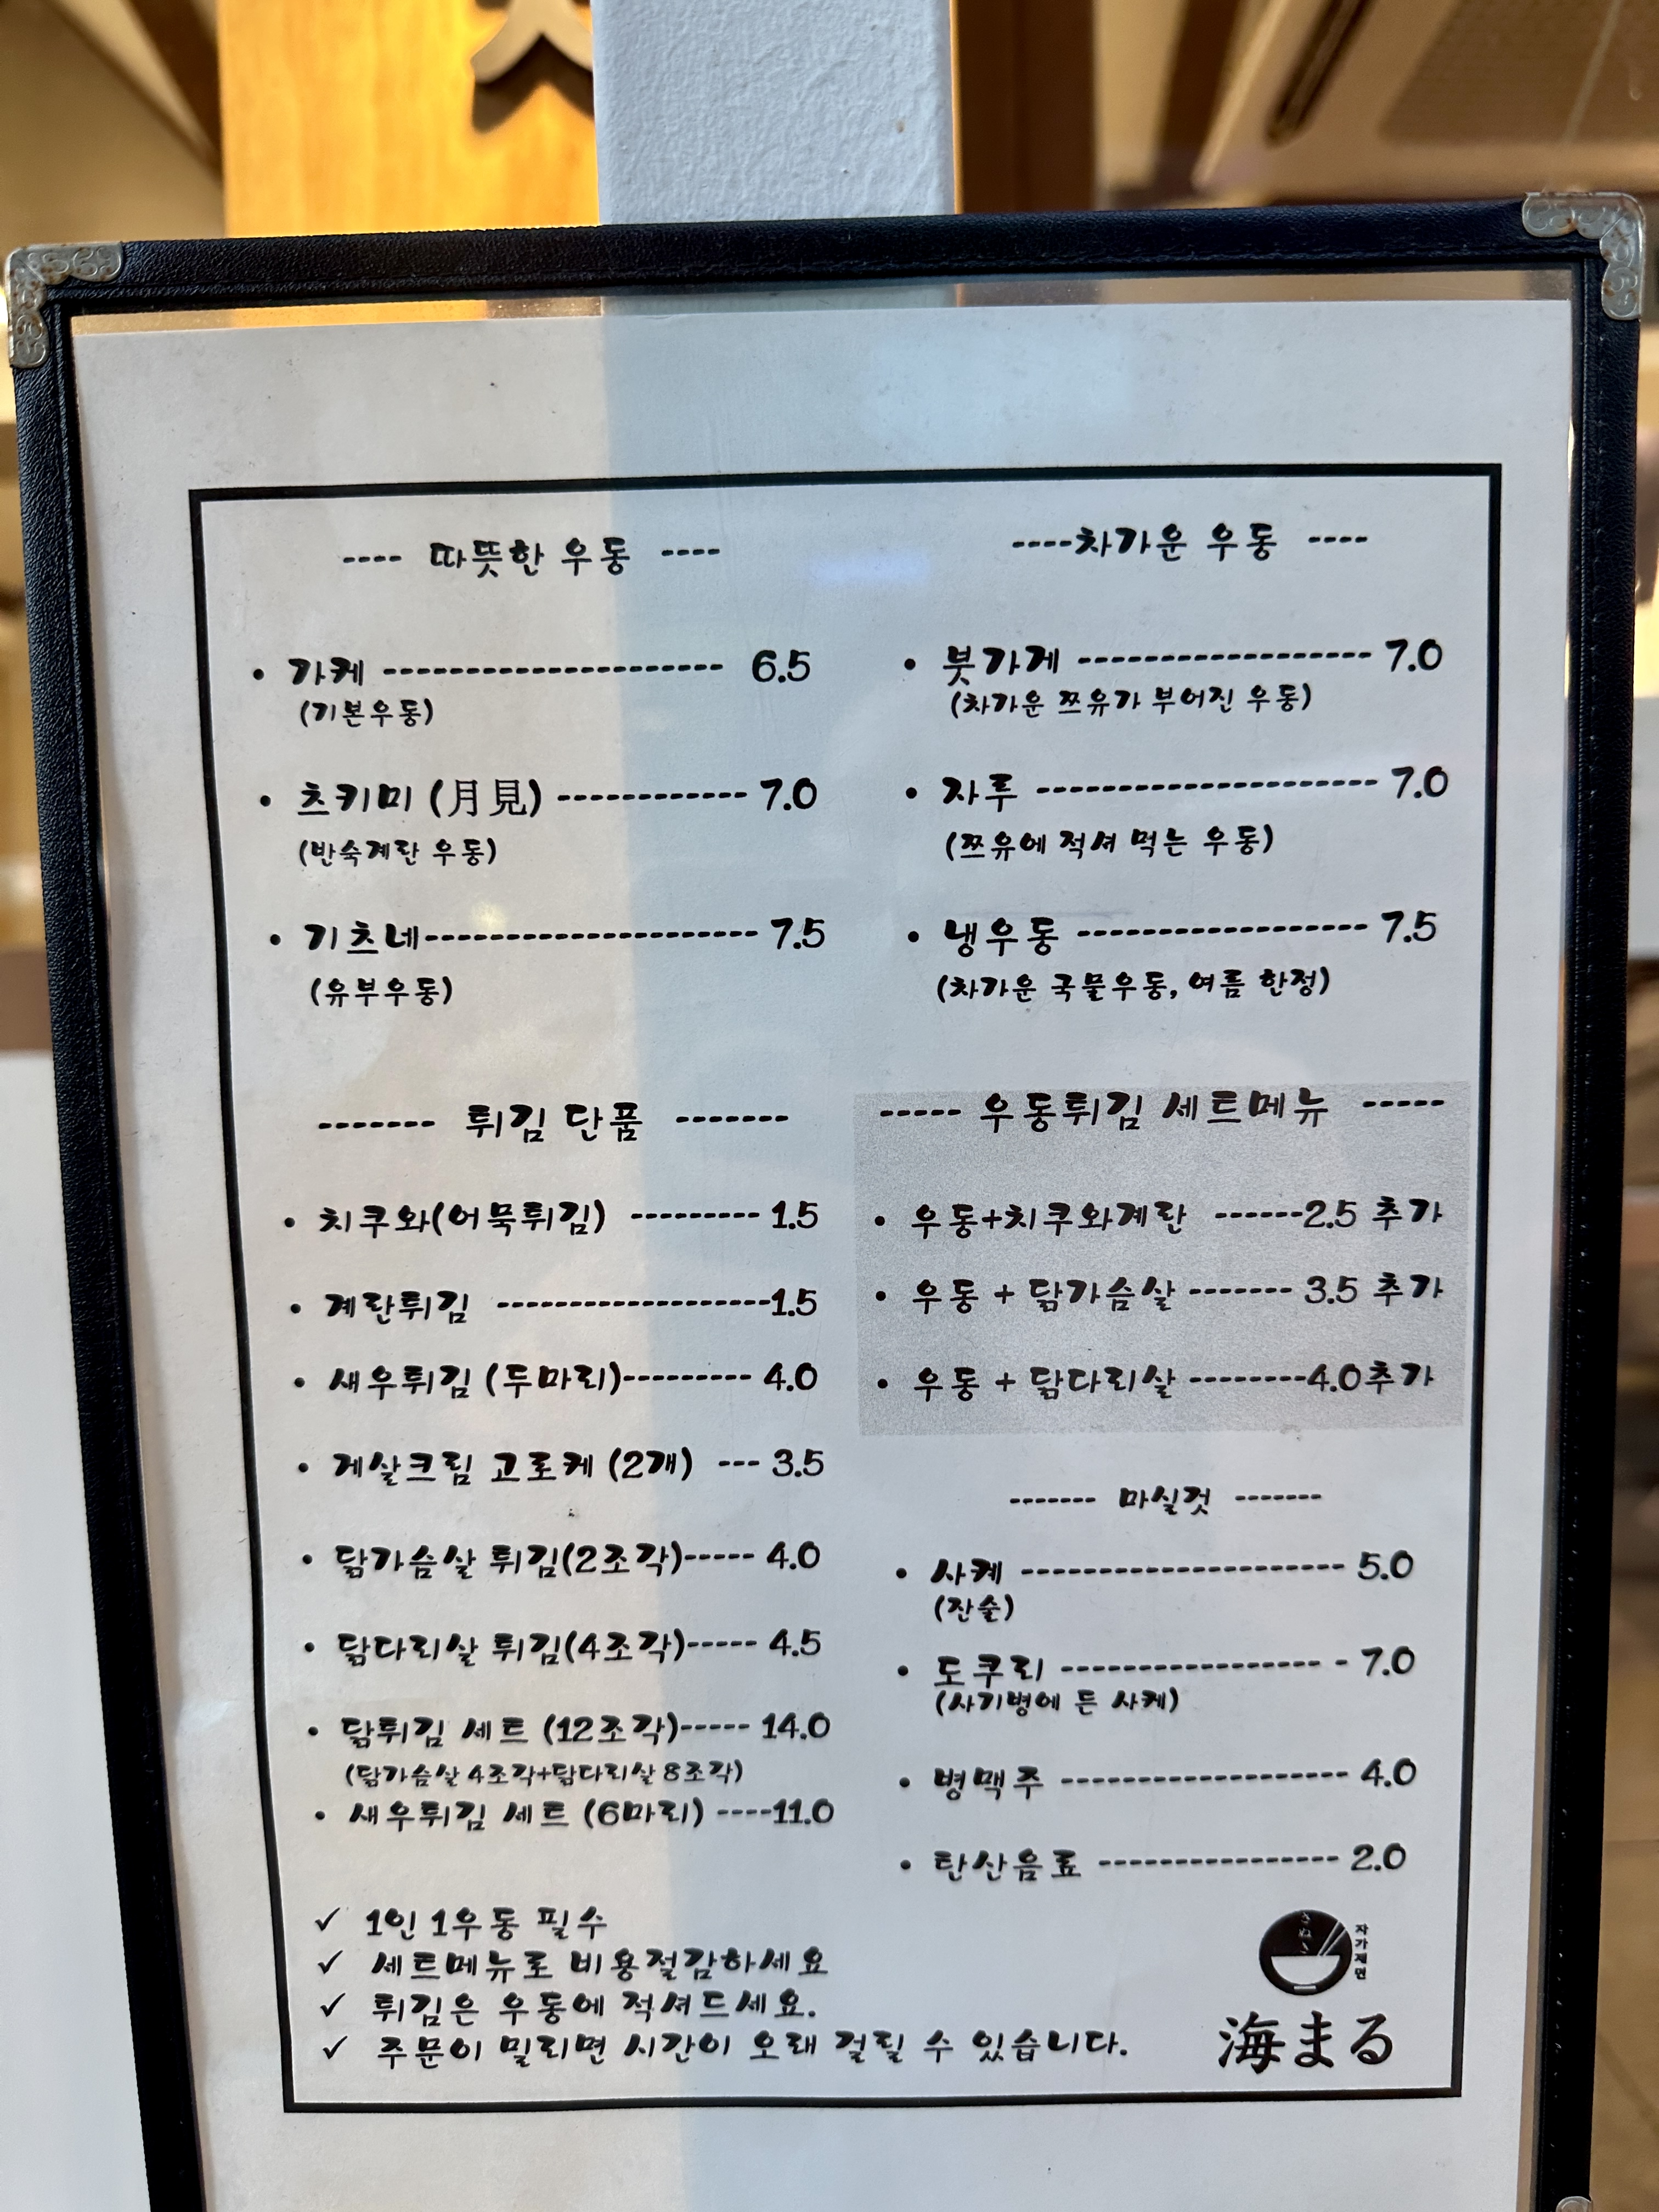 ---- 따뜻한 우동 ----
• 가케 --------------------- 6.5
(기본우동)
• 츠키미 (月見) ------------ 7.0
(반숙계란 우동)
• 기츠네--------------------- 7.5
(유부우동)
----차가운 우동 ----
• 붓가게 ------------------ 7.0
(차가운 쯔유가 부어진 우동)
• 자루 --------------------- 7.0
(쯔유에 적셔 먹는 우동)
• 냉우동 ------------------ 7.5
(차가운 국물우동, 여름 한정)
------- 튀김 단품 -------
• 치쿠와(어묵튀김) --------- 1.5
• 계란튀김 -----------------1.5
• 새우튀김 (두마리)--------- 4.0
• 게살크림 고로케 (2개) --- 3.5
• 닭가슴살 튀김(2조각)----- 4.0
• 닭다리살 튀김(4조각)----- 4.5
• 닭튀김 세트 (12조각)----- 14.0
(닭가슴살 4조각+닭다리살 8조각)
• 새우튀김 세트 (6마리) ----11.0
----- 우동튀김 세트메뉴 -----
• 우동+치쿠와계란 ------2.5 추가
• 우동 + 닭가슴살 ------- 3.5 추가
• 우동 + 닭다리살 --------4.0추가
------- 마실것 -------
• 사케 -------------------- 5.0
(잔술)
• 도쿠리 ---------------- - 7.0
(사기병에 든 사케)
• 병맥주 ------------------ 4.0
• 탄산음료 --------------- 2.0
✓ 1인 1우동 필수
✓ 세트메뉴로 비용절감하세요
✓ 튀김은 우동에 적셔드세요.
✓ 주문이 밀리면 시간이 오래 걸릴 수 있습니다.
자가제면
海まる